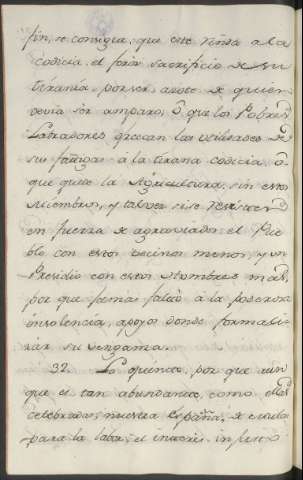 fin, se consigue, que este rinda a la
codicia el forzo sacrificio de su
tirania, por ser azote de quien
devia ser amparo, ô que los Pobres
Labradores ofrezcan las utilidades de
su fatiga â la tirana codicia, ô
que quede la Agricultura sin estos
miembros, y tal vez si se resisten
en fuerza de agraviados el Pue
blo con estos vecinos menos, y un
Presidio con estos Hombres mas,
por que jamás faltan â la poderosa
insolencia, apoyos donde formali
zar su venganza.
32. La quinta, por que aun
que es tan abundante, como
celebrada, nuestra España, de
para la labor, el interés injusto